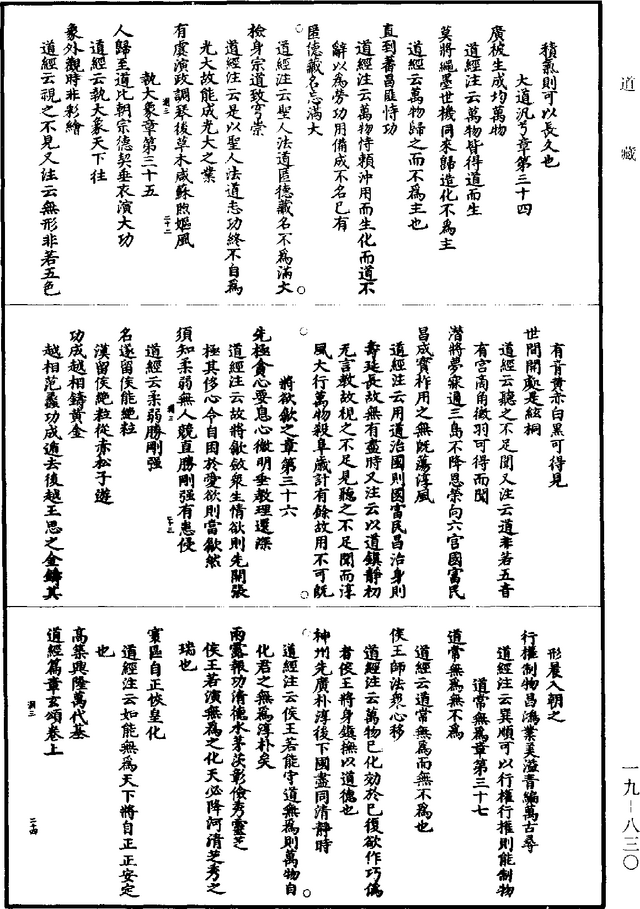 道藏
積氣則可以長久也
大道汎兮章第三十四
廣被生成均萬物
道經注云萬物皆得道而生
莫將繩墨世機同來歸造化不為主
道經云萬物歸之而不為主也
直到蕃昌匪恃功
道經注云萬物恃賴沖用而生化而道不
辭以為勞功用備成不名已有
匿德藏名忘滿大
道經注云聖人法道匿德藏名不為滿大
檢身宗道致穹崇
道經注云是以聖人法道忘功終不自為
光大故能成光大之業
有虞演政調琴後草木咸蘇煦嫗風
洞三
二十二
執大象章第三十五
人歸至道比朝宗德契垂衣演大功
道經云執大象天下往
象外觀時非彩繪
道經云視之不足見又注云無形非若五色
有青黃赤白黑可得見
世間聞處是絃桐
道經云聽之不足聞又注云道非若五音
有宮商角徵羽可得而聞
潛將夢寐通三島不降恩榮向六宮國富民
昌成實祚用之無既蕩淳風
道經注云用道治國則國富民昌治身則
壽延長故無有盡時又注云以道鎮靜初
无言教故視之不足見聽之不足聞而淳
風大行萬物殺阜歲計有餘故用不可既
將欲歙之章第三十六
先極貪心要息心微明垂教理還深
道經注云故將欲歙斂衆生情欲則先開張
極其侈心令自困於愛欲則當歙然
須知柔弱無人競直勝剛強有患侵
洞三
二十三
道經云柔弱勝剛强
名遂留侯能絕粒
漢留侯絶粒從赤松子遊
功成越相鑄黃金
越相范蠡功成遁去後越王思之金鑄其
形晨入朝之
行權制物昌鴻業美溢青編萬古尋
道經注云異順可以行權行權則能制物
道常無為章第三十七
道常無為無不為
道經云道常無為而無不為也
侯王師法衆心移
道經注云萬物已化効於己復欲作巧偽
者侯王將身鎮撫以道德也
神州先廣朴淳後下國盡同清靜時
道經注云侯王若能守道無為則萬物自
化君之無為淳朴矣
雨露報功清德水茅茨彰儉秀靈芝
侯王若演無為之化天必降河清芝秀之
瑞也
寰區自正恢皇化
道經注云如能無為天下將自正正安定
也
高築興隆萬代基
道經篇章玄頌卷上
洞三
二十四
一九-八三〇